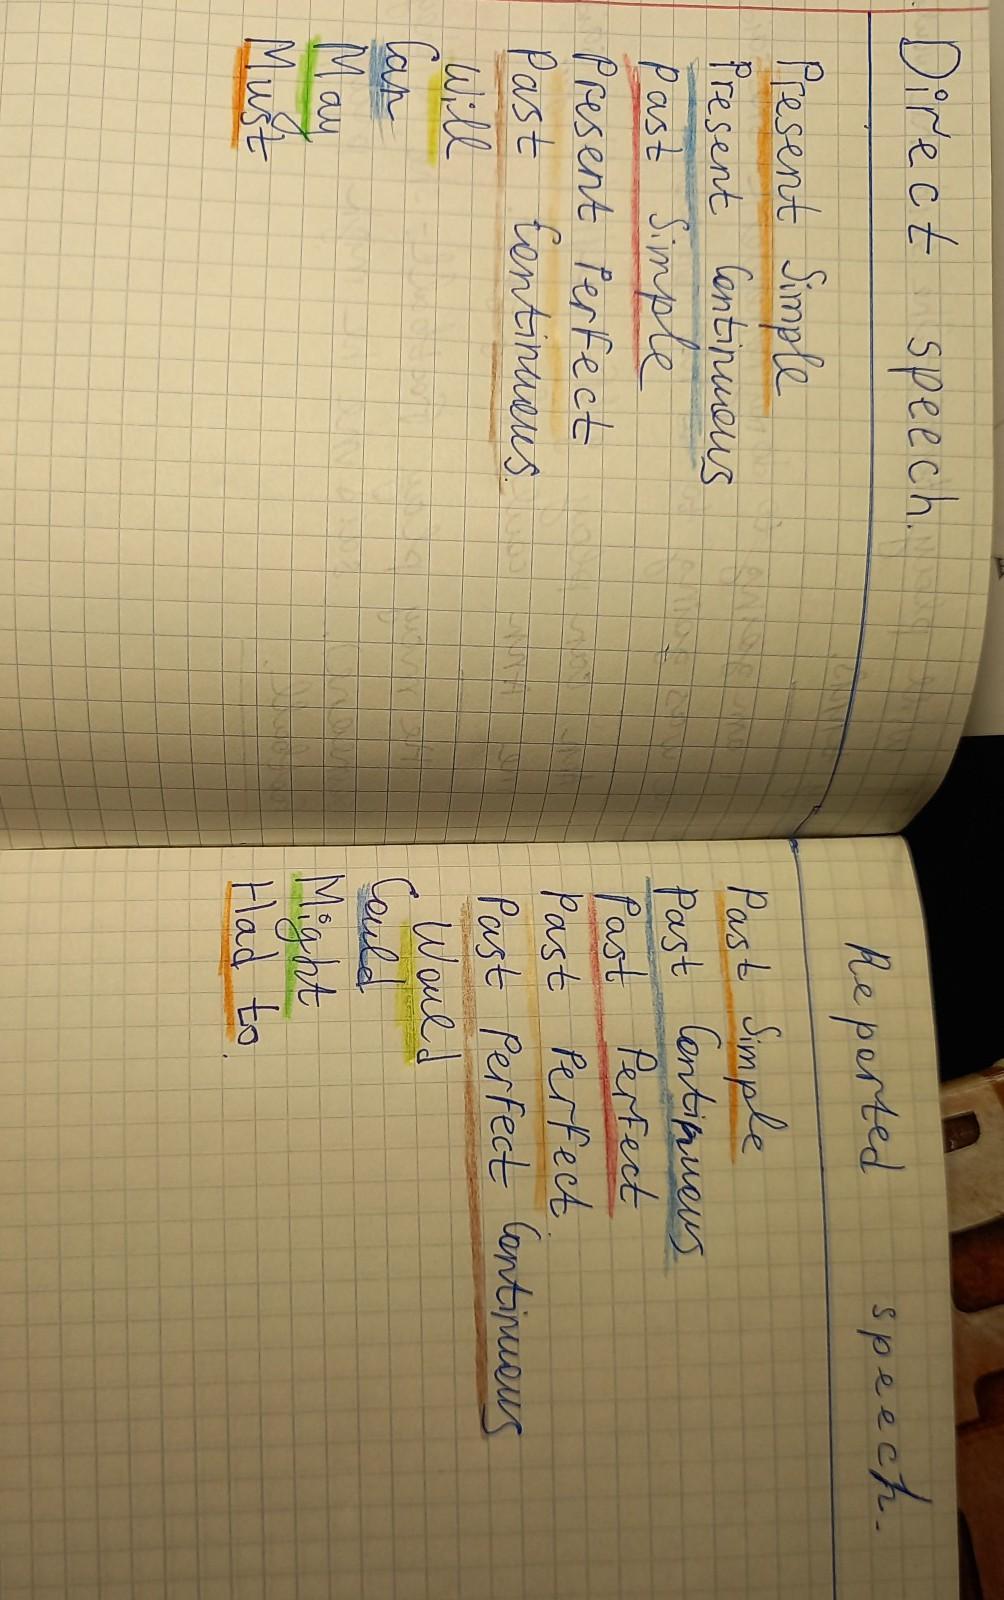 Direct speech.
Present Simple
Present Continuous
Past Simple
Present Perfect
Past Continuous.
Will
Can
May
Must
Reported speech.
Past Simple
Past Continuous
Past Perfect
Past Perfect.
Past Perfect Continuous
Would
Could
Might
Had to.